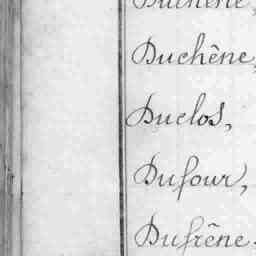 Duchêne,
Duchêne,
Duclos,
Dufour,
Dufrêne.